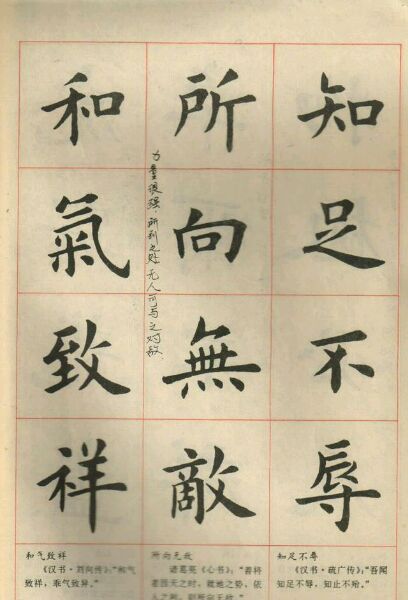 知足不辱
所向無敵
力量很强，所到之处，无人可与之对敌.
和氣致祥
知足不辱
《汉书·疏广传》："吾闻
知足不辱，知止不殆。"
所向无敌
诸葛亮《心书》："善将
者因天之时，就地之势，依
人之利，则所向无敌。"
和气致祥
《汉书·刘向传》："和气
致祥，乖气致异。"